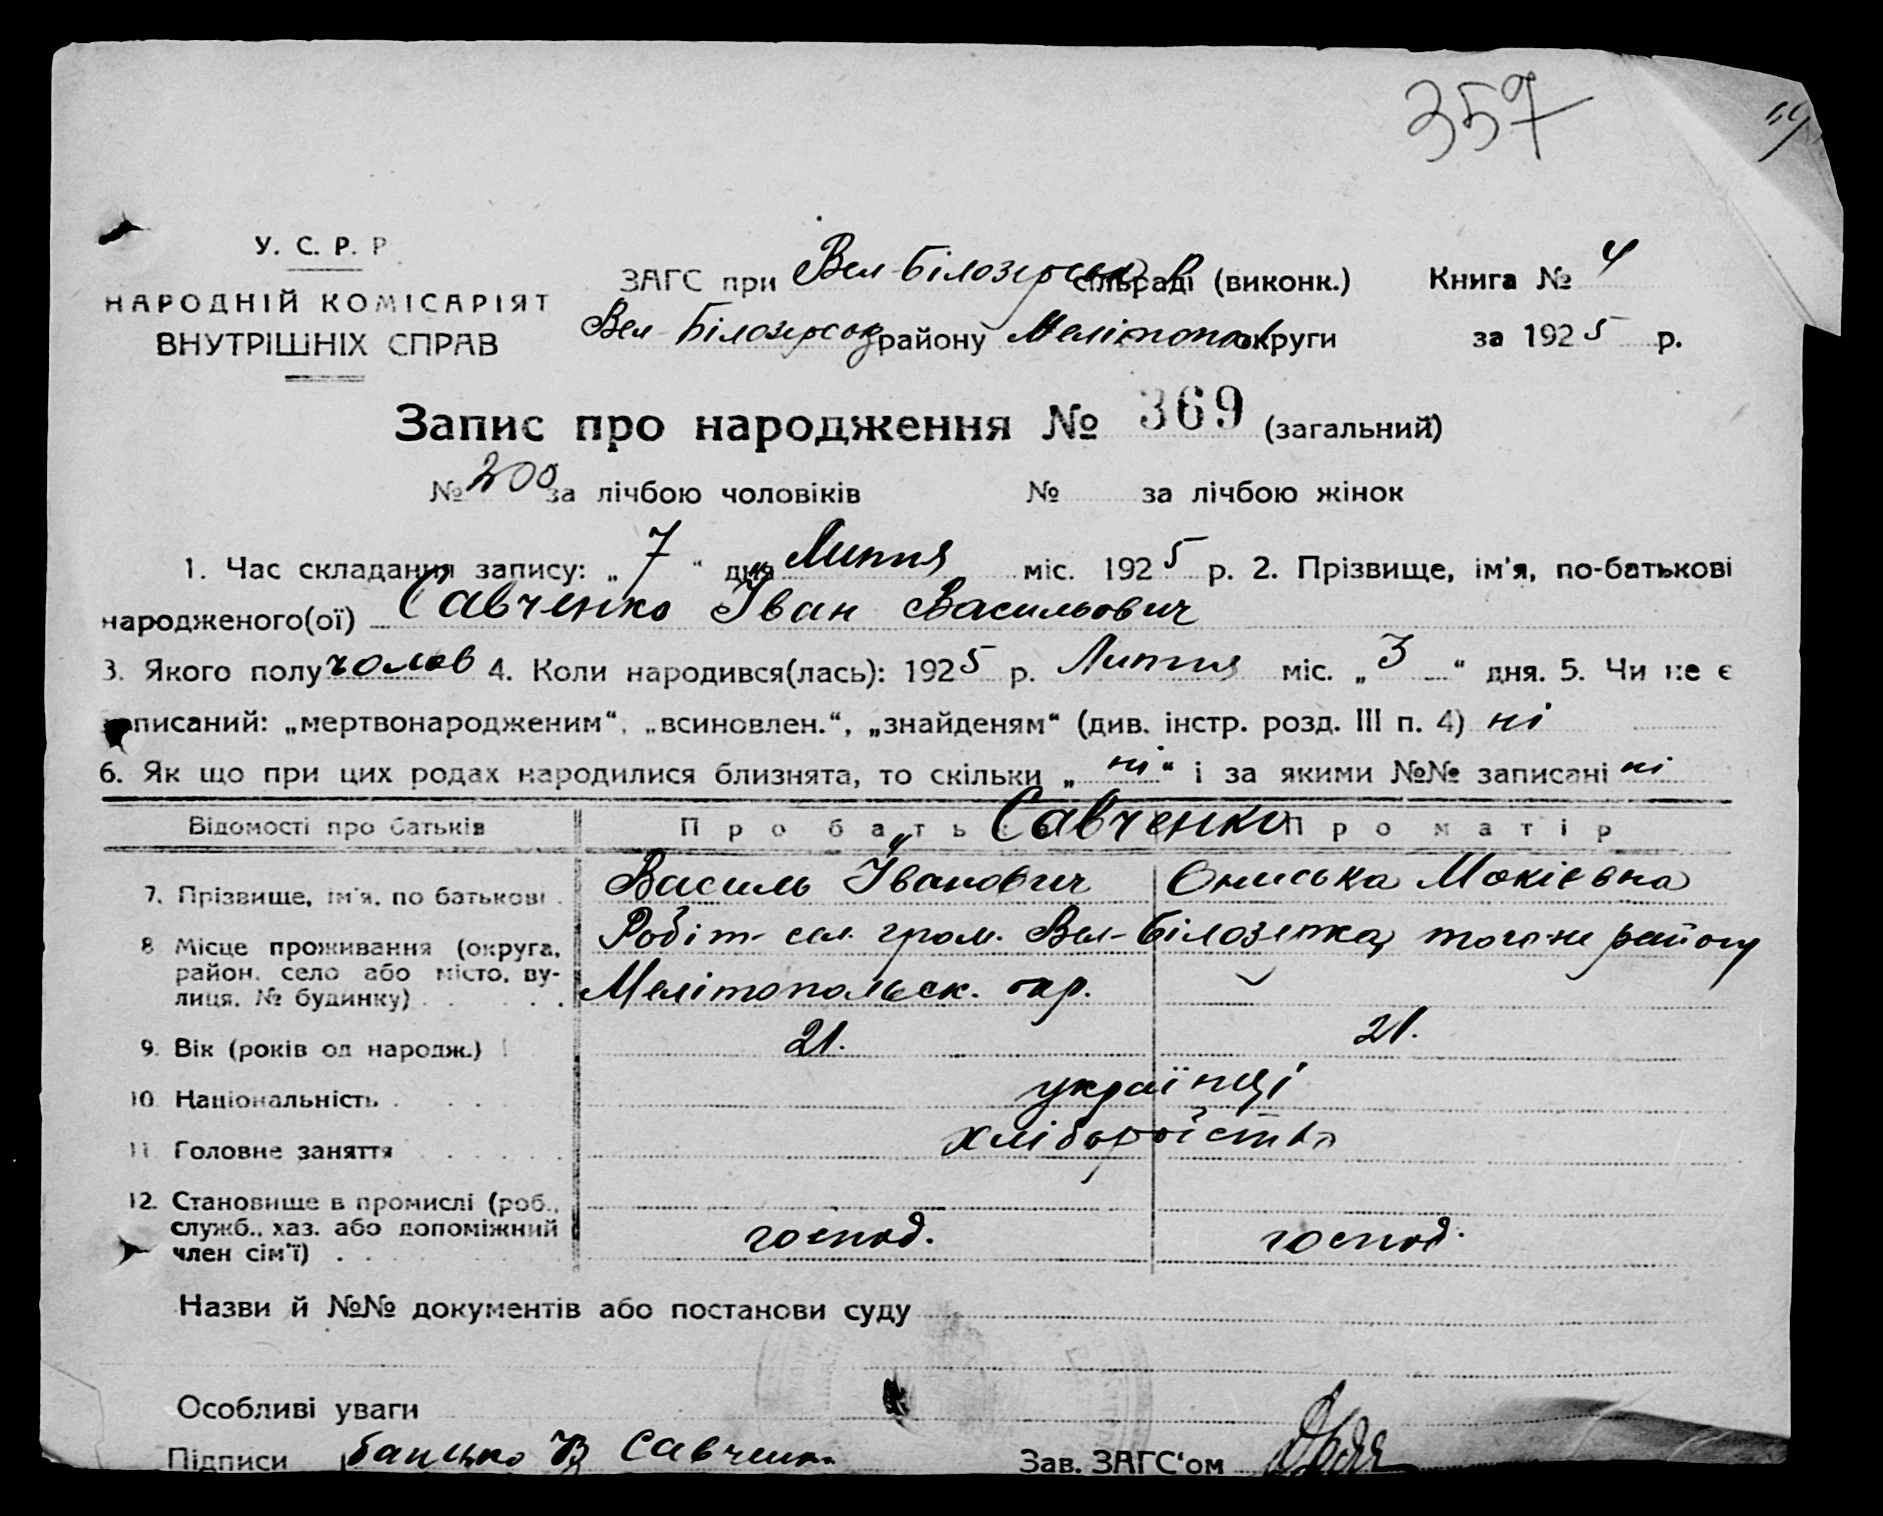 357
У. С. Р. Р.
НАРОДНІЙ КОМІСАРІЯТ
ВНУТРІШНІХ СПРАВ
ЗАГС при Вел-Білозерськ сільраді (виконк.) Книга № 4
Вел-Білозерськ району Мелітопол округи за 1925 р.
Запис про народження № 369 (загальний)
№ 200 за лічбою чоловіків № за лічбою жінок
1. Час складання запису: „7“ дня Липня міс. 1925 р. 2. Прізвище, ім'я, по-батькові
народженого(ої) Савченко Іван Васильович
3. Якого полу чолов 4. Коли народився(лась): 1925 р. Липня міс. „3“ дня. 5. Чи не є
записаний: „мертвонародженим“, „всиновлен.“, „знайденям“ (див. інстр. розд. III п. 4) ні
6. Як що при цих родах народилися близнята, то скільки „ні“ і за якими №№ записані ні
Відомості про батьків Про батька Савченко Про матір
7. Прізвище, ім'я, по батькові Василь Іванович Ониська Мокієвна
8. Місце проживання (округа, район, село або місто, вулиця, № будинку) Робіт. сел. гром. Вел-Білозерка, того-же району
Мелітопольск. окр.
9. Вік (років од народж.) 21. 21.
10. Національність українці
11. Головне заняття
12. Становище в промислі (роб., служб., хаз. або допоміжний член сім'ї) господ. господ.
Назви й №№ документів або постанови суду
Особливі уваги
Підписи батько В Савченко Зав. ЗАГС'ом